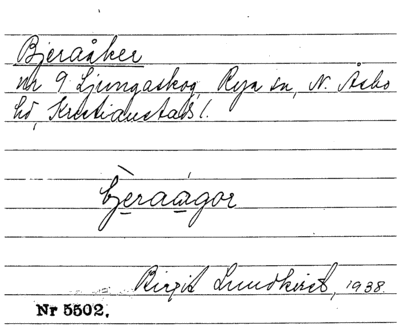 Bjeraåker
nr 9 Ljungaskog, Rya sn, N. Åsbo
hd, Kristianstads l.
bjeraågor
Birgit Lundkvist, 1938.
Nr 5502.